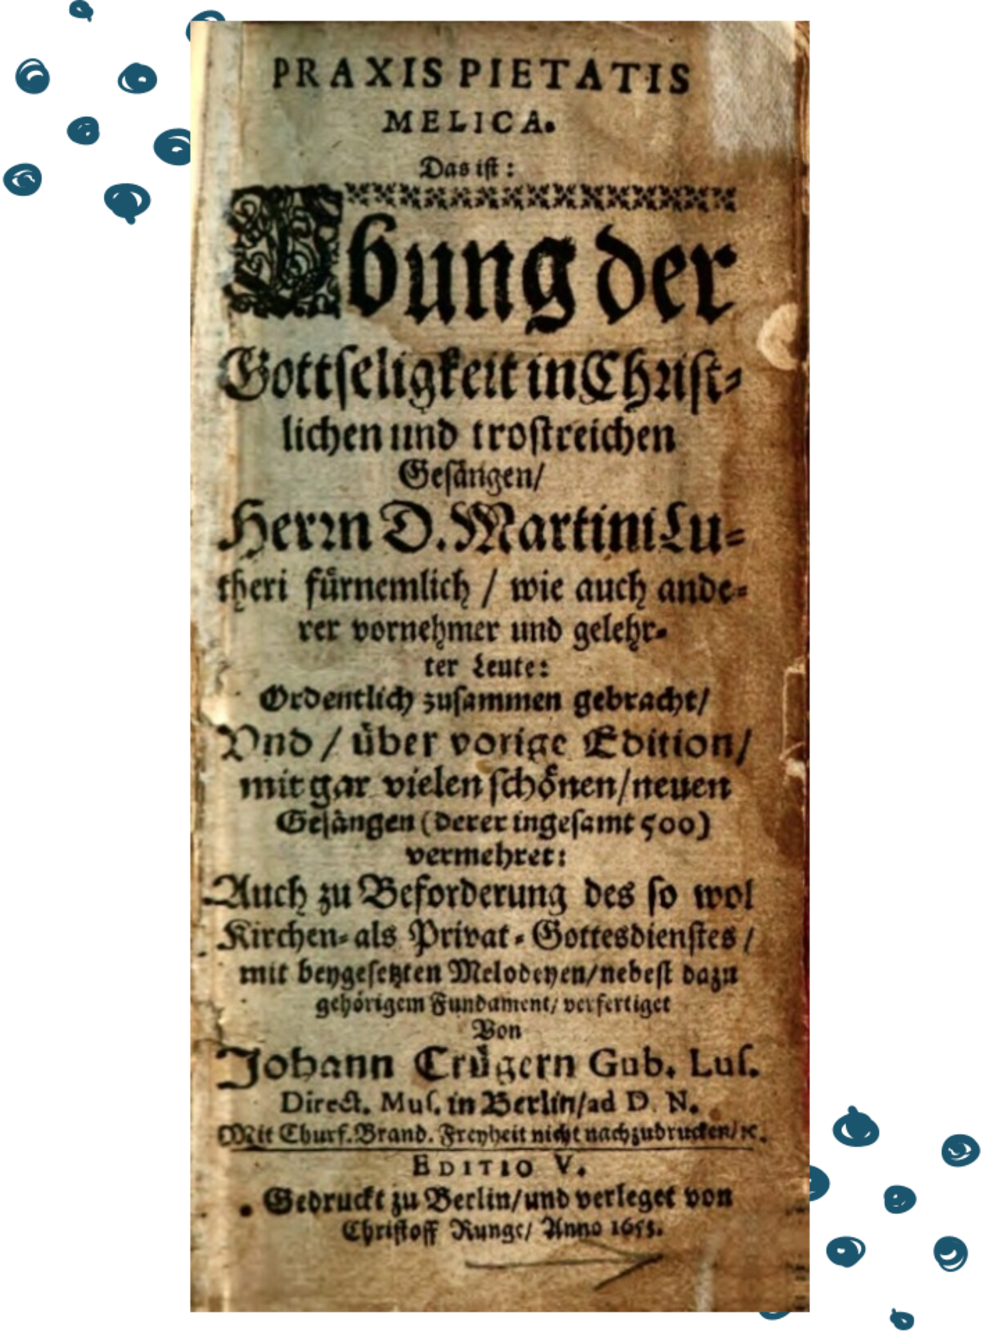 PRAXIS PIETATIS
MELICA.
Das ist:
Übung der
Gottseligkeit in Christ-
lichen und trostreichen
Gesängen/
Herrn D. Martini Lu-
theri fürnemlich / wie auch ande-
rer vornehmer und gelehr-
ter Leute:
Ordentlich zusammen gebracht/
Vnd / über vorige Edition/
mit gar vielen schönen/neuen
Gesängen (derer ingesamt 500)
vermehret:
Auch zu Beforderung des so wol
Kirchen- als Privat-Gottesdienstes /
mit beygesetzten Melodeyen/nebest dazu
gehörigem Fundament/ verfertiget
Von
Johann Crügern Gub. Lus.
Direct. Mus. in Berlin/ad D. N.
Mit Churf. Brand. Freyheit nicht nachzudrucken/ꝛc.
EDITIO V.
Gedruckt zu Berlin/und verleget von
Christoff Runge/ Anno 1653.